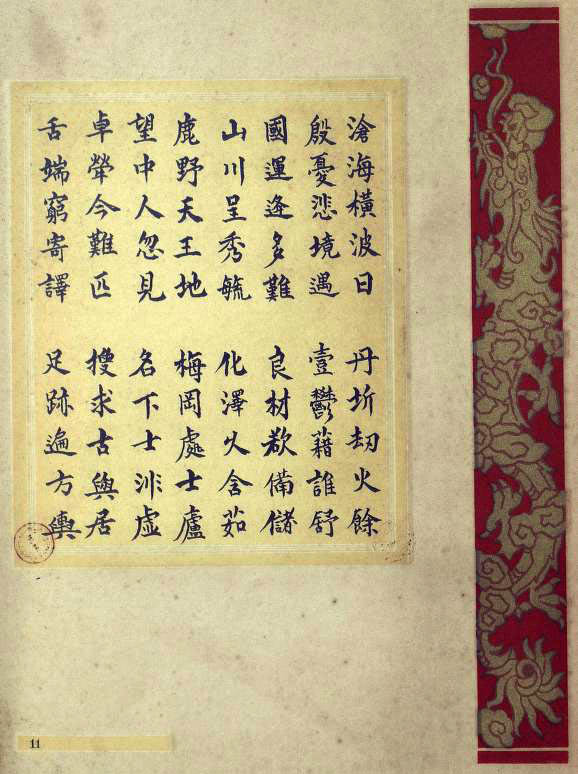 滄海橫波日 丹圻刼火餘
殷憂悲境遇 壹鬱藉誰舒
國運逢多難 良材欲備儲
山川呈秀毓 化澤久含茹
鹿野天王地 梅岡處士廬
望中人忽見 名下士非虛
卓犖今難匹 搜求古與居
舌端窮寄譯 足跡遍方輿
11